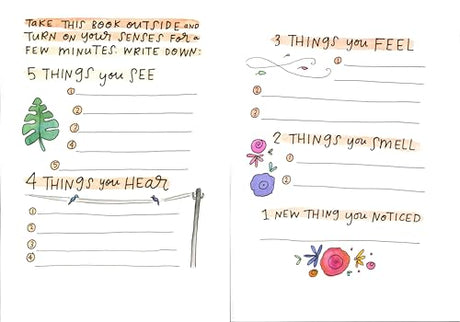 TAKE THIS BOOK OUTSIDE AND
TURN ON YOUR SENSES FOR A
FEW MINUTES. WRITE DOWN:
5 THINGS you SEE
1
2
3
4
5
4 THINGS you HEAR
1
2
3
4
3 THINGS you FEEL
1
2
3
2 THINGS you SMELL
1
2
1 NEW THING you NOTICED